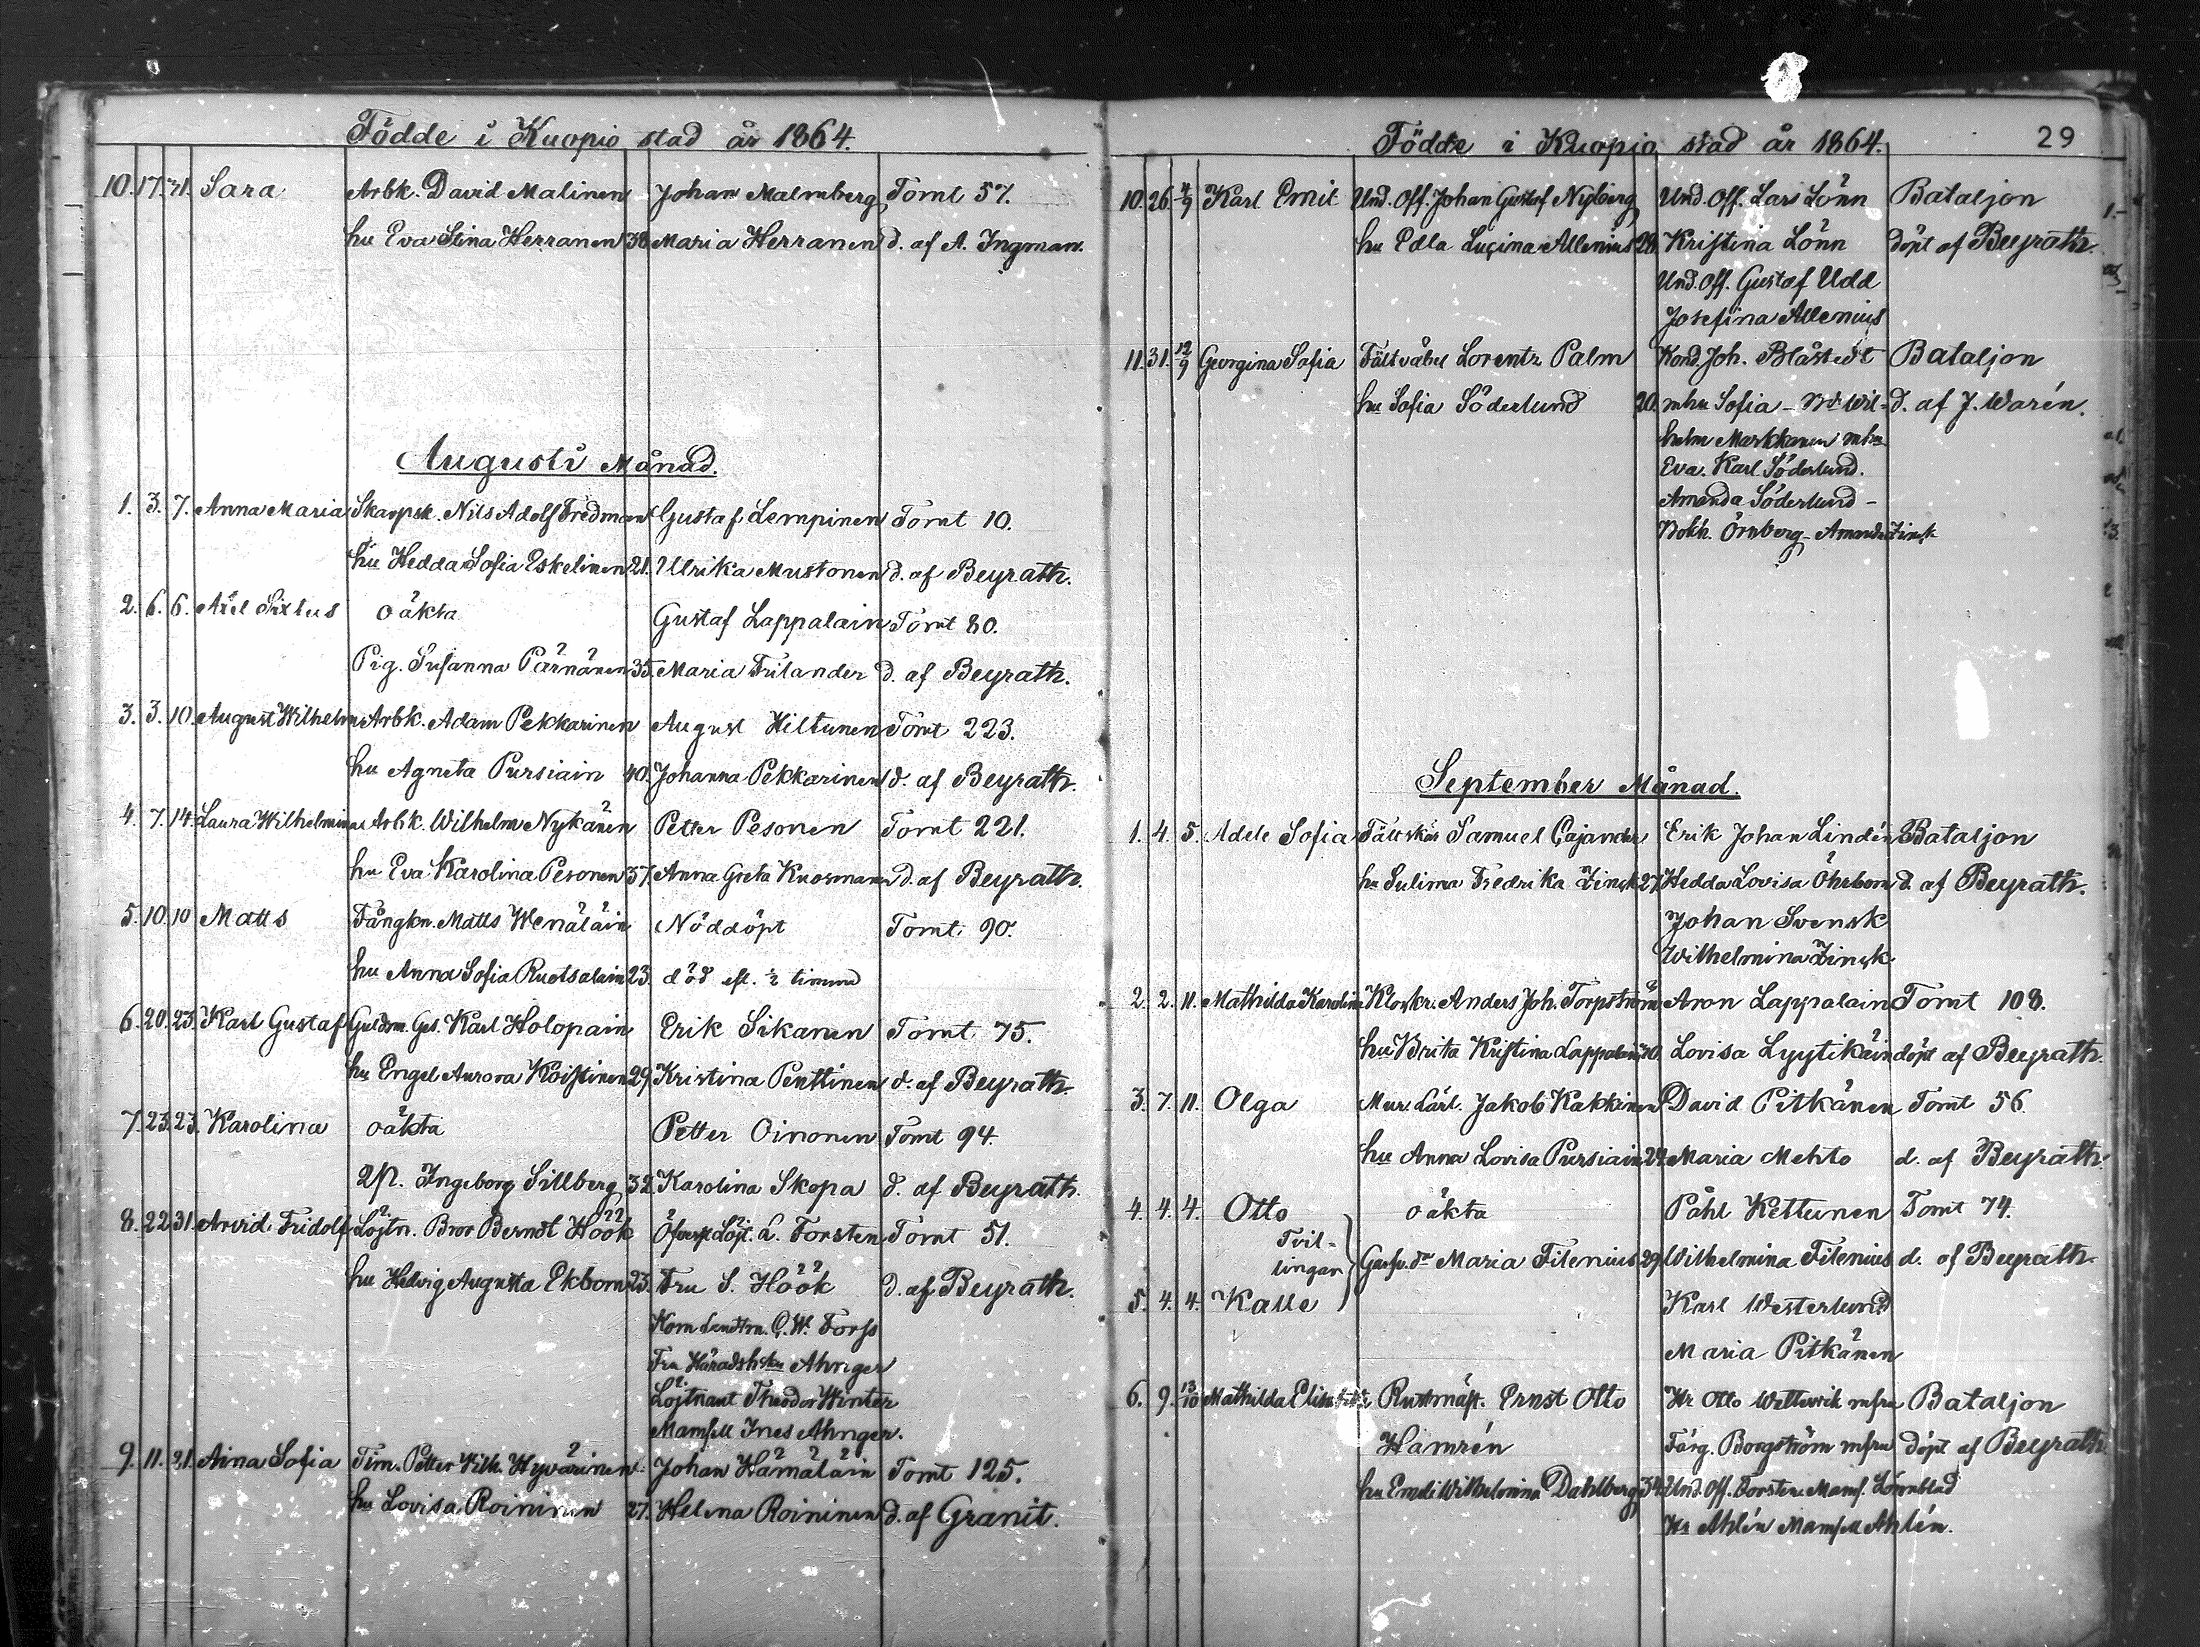 Födde i Kuopio stad år 1864.
10. 17. 21. Sara Arbk. David Malinen Johan Malmberg Tomt 57.
hu Eva Stina Herranen 38. Maria Herranen d. af A. Ingman.
Augusti Månad.
1. 3. 7. Anna Maria Nils Adolf Fredman Gustaf Lempinen Tomt 10.
hu Hedda Sofia Eskelinen 21. Ulrika Mustonen d. af Beyrath.
2. 6. 6. Axel Sixtus oäkta Gustaf Lappalain Tomt 80.
Pig. Susanna Pärnänen 35. Maria Frilander d. af Beyrath.
3. 3. 10. August Wilhelm Arbk. Adam Pekkarinen August Hiltunen Tomt 223.
hu Agneta Pursiain 40. Johanna Pekkarinen d. af Beyrath.
4. 7. 14. Laura Wilhelmina Arbk. Wilhelm Nykänen Petter Pesonen Tomt 221.
hu Eva Karolina Pesonen 37. Anna Greta Kuosmanen d. af Beyrath.
5. 10. 10 Matts Fångkn. Matts Wenäläin Nöddöpt Tomt 90.
hu Anna Sofia Ruotsalain 23. död eft. ½ timme
6. 20. 23. Karl Gustaf Guldsm. Ges. Karl Holopain Erik Sikanen Tomt 75.
hu Engel Aurora Koistinen 29. Kristina Penttinen d. af Beyrath.
7. 23. 23. Karolina oäkta Petter Oinonen Tomt 94.
Ingeborg Sillberg 32. Karolina Skopa d. af Beyrath.
8. 22. 31. Arvid Fridolf Löjtn. Bror Berndt Höök L. Forsten Tomt 51.
hu Hedvig Augusta Ekbom 23. Fru S. Höök d. af Beyrath.
Kom Landtm. C. W. Forss
Fru Ahnger
Löjtnant Theodor Winter
Mamsell Ines Ahnger.
9. 11. 21. Aina Sofia Tim. Petter Wilh. Hyvärinen Johan Hämäläin Tomt 125.
hu Lovisa Roininen 27. Helena Roininen d. af Granit.
Födde i Kuopio stad år 1864. 29
10. 26. 4/9 Karl Emil Und. Off. Johan Gustaf Nyberg Und. Off. Lars Lönn Bataljon
hu Edla Lucina Allenius 28. Kristina Lönn döpt af Beyrath.
Und. Off. Gustaf Udd
Josefina Allenius
11. 31. 12/9 Georgina Sofia Fältväbel Lorentz Palm Kond. Joh. Blåstedt Bataljon
hu Sofia Söderlund 20. mhu Sofia - Wil- d. af J. Warén.
helm Markkanen mhu
Eva. Karl Söderlund.
Amanda Söderlund -
Bokh. Örnberg - Amanda Zinck
September Månad.
1. 4. 5. Adele Sofia Fältskär Samuel Cajander Erik Johan Lindén Bataljon
hu Sulima Fredrika Zinck 27. Hedda Lovisa Öhrbom d. af Beyrath.
Johan Svensk
Wilhelmina Zinck
2. 2. 11. Mathilda Karolina Anders Joh. Torpström Aron Lappalain Tomt 108.
hu Brita Kristina Lappalain Lovisa Lyytikäin döpt af Beyrath.
3. 7. 11. Olga Mur. Lärl. Jakob Kakkinen David Pitkänen Tomt 56.
hu Anna Lovisa Pursiain 29. Maria Mehto d. af Beyrath.
4. 4. 4. Otto oäkta Påhl Kettunen Tomt 74.
Tvil-
lingar Maria Filenius 29. Wilhelmina Filenius d. af Beyrath.
5. 4. 4. Kalle Karl Westerlund
Maria Pitkänen
6. 9. 13/10 Mathilda Ruttmäst. Ernst Otto Hr Otto mfru Bataljon
Hamrén Färg. Borgström mfru döpt af Beyrath.
hu Emeli Wilhelmina Dahlberg 34. Und. Off. Forsten. Mams. Lönnblad
Hr Ahlén Mamsell Ahlén.